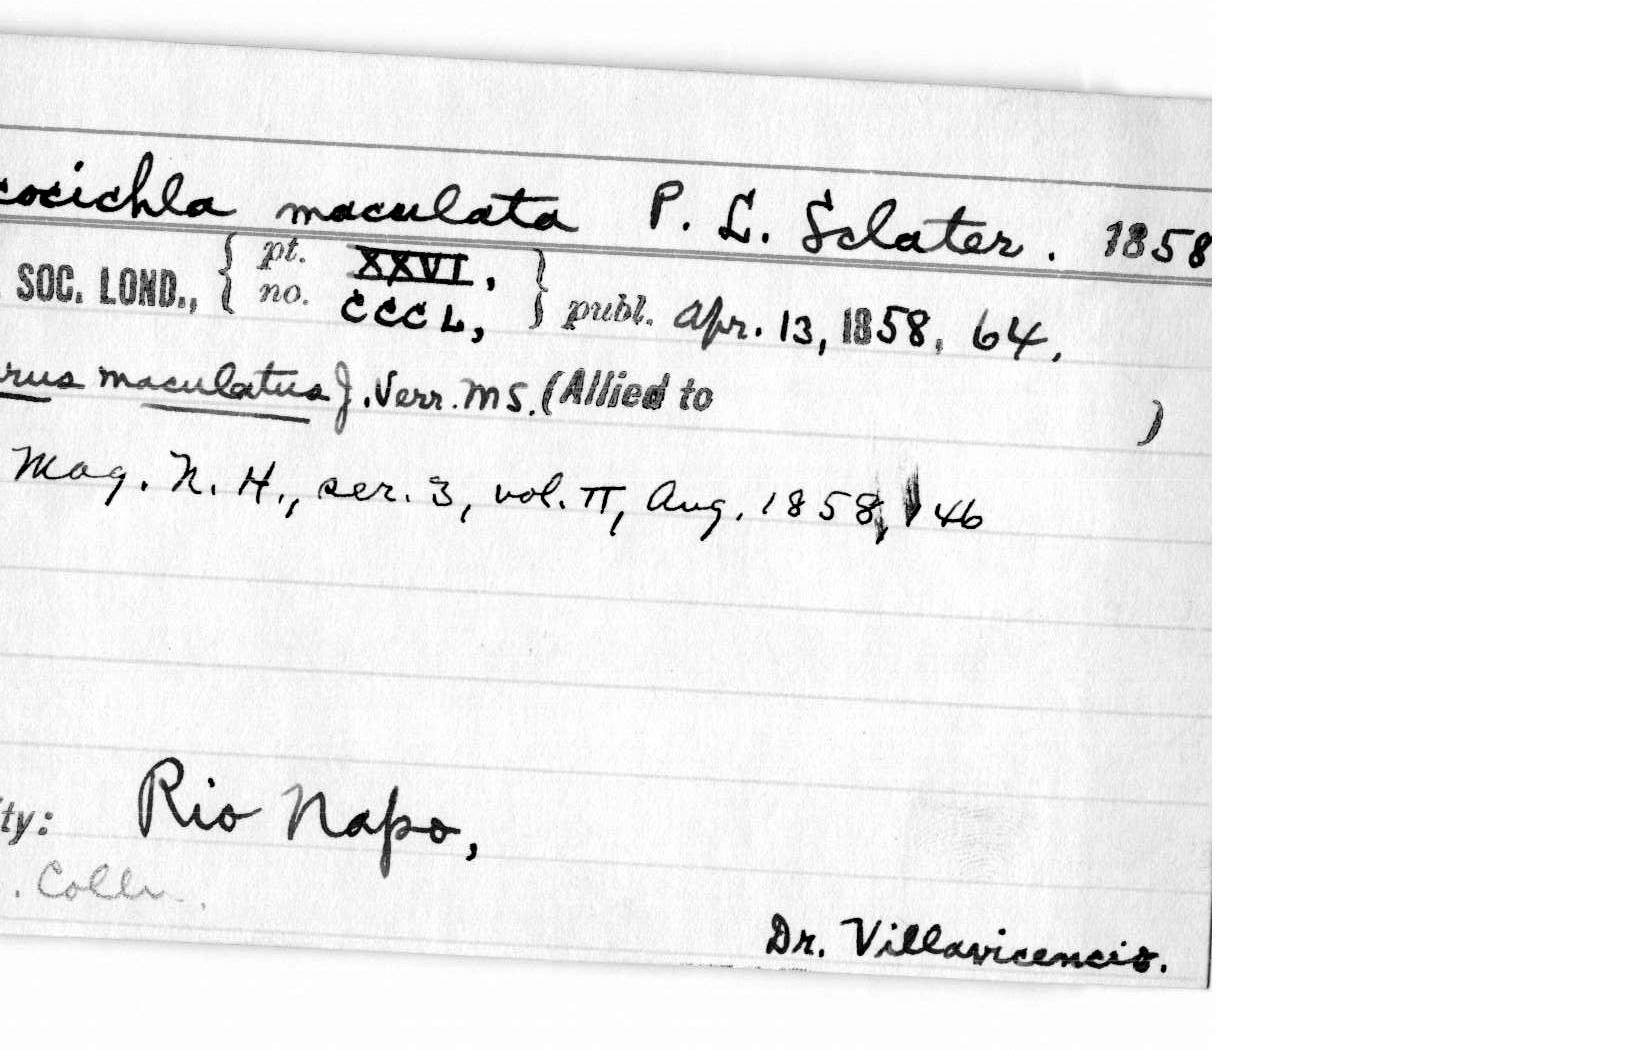 cocichla maculata P. L. Sclater. 1858
SOC. LOND., { pt. XXVI, } publ. Apr. 13, 1858, 64.
no. CCCL,
rus maculatus J. Verr. MS. (Allied to )
Mag. N. H., ser. 3, vol. II, Aug. 1858, 146
ty: Rio Napo,
. Colln.
Dr. Villavicencio.